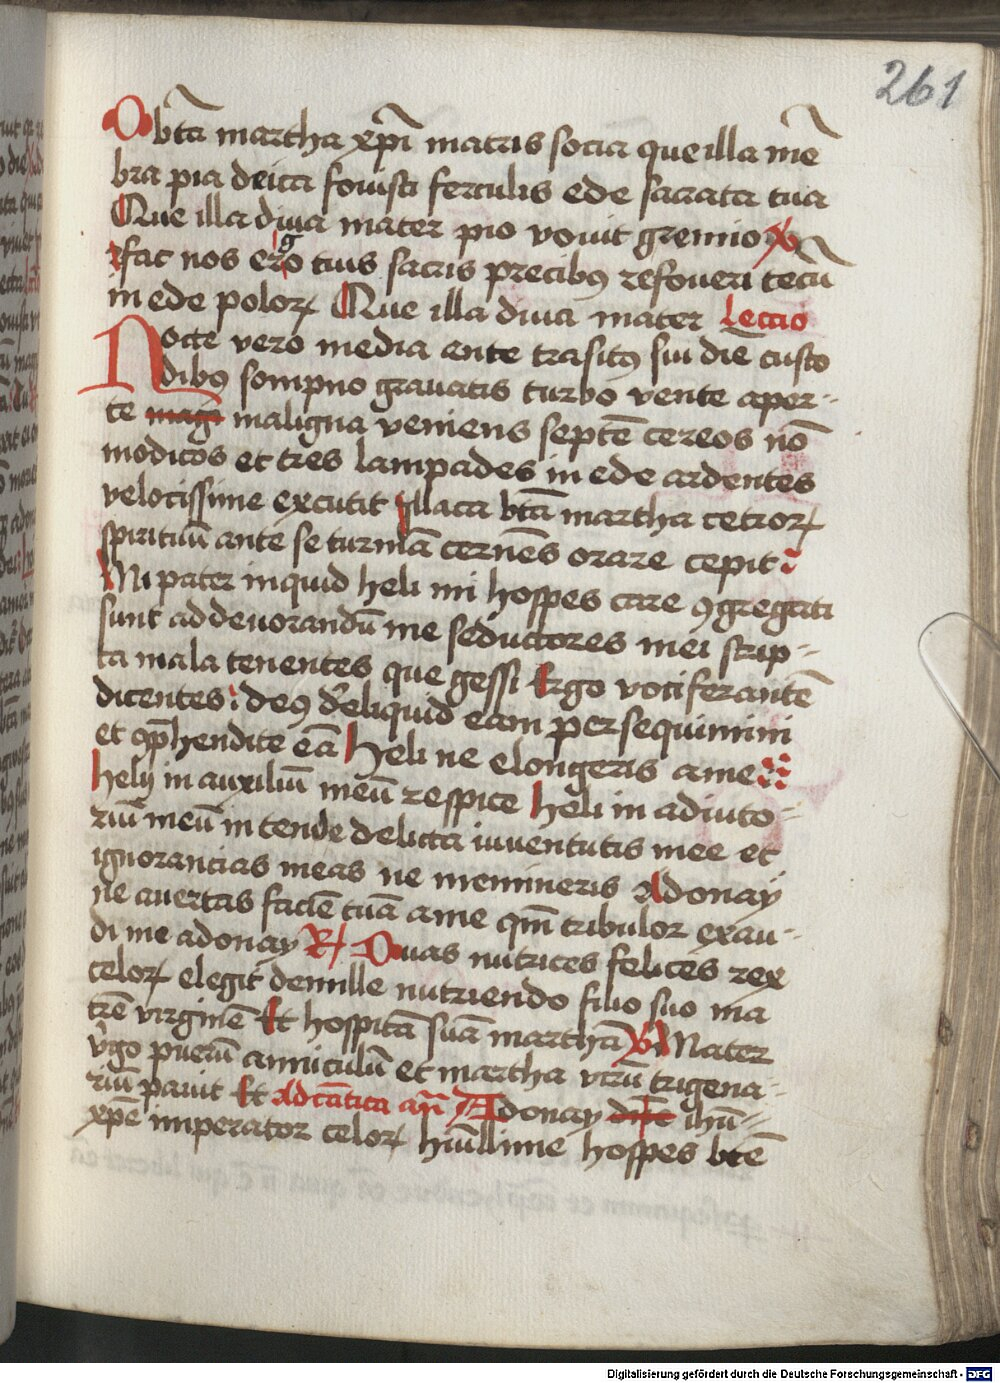 261
O bt̄a martha xp̄i matris socia que illa mē
bra pia deica fouisti ferculis ede sacrata tua
Que illa diua mater pio vouit gremio ℣
fac nos ergo tuis sacris precibꝯ refoueri tecū
in ede poloꝝ Que illa diua mater Lectio
Nocte vero media ante trāsitꝯ sui diē custo
dibꝯ sompno grauatis turbo vente aper-
te mag maligna veniens septē cereos nō
modicos et tres lampades in ede ardentes
velocissime excutit illaca bt̄a martha cetroꝝ
spirituū ante se turmā cernēs orare cepit
Mi pater inquid heli mi hospes care ꝯgregati
sunt ad deuorandū me seductores mei scrip-
ta mala tenentes que gessi Ergo vociferantē
dicentes: deꝯ d'eliquid eam persequimini
et ꝯp̄hendite eā Heli ne elongeris a me
hely in auxiliū meū respice heli in adiuto-
riū meū intende delicta iuuentutis mee et
ignorancias meas ne memineris Adonay
ne auertas faciē tuā a me qm̄ tribulor exau-
di me adonay R/ Duas nutrices felices rex
celoꝝ elegit demille nutriendo filio suo ma
trē virginē Et hospitā suā marthā ℣ Mater
v'go puerū anniculū et martha virū trigena-
riū pauit Et Ad cātica an̄ Adonay ihū-
xpē imperator celoꝝ hūllime hospes btē
Digitalisierung gefördert durch die Deutsche Forschungsgemeinschaft - DFG